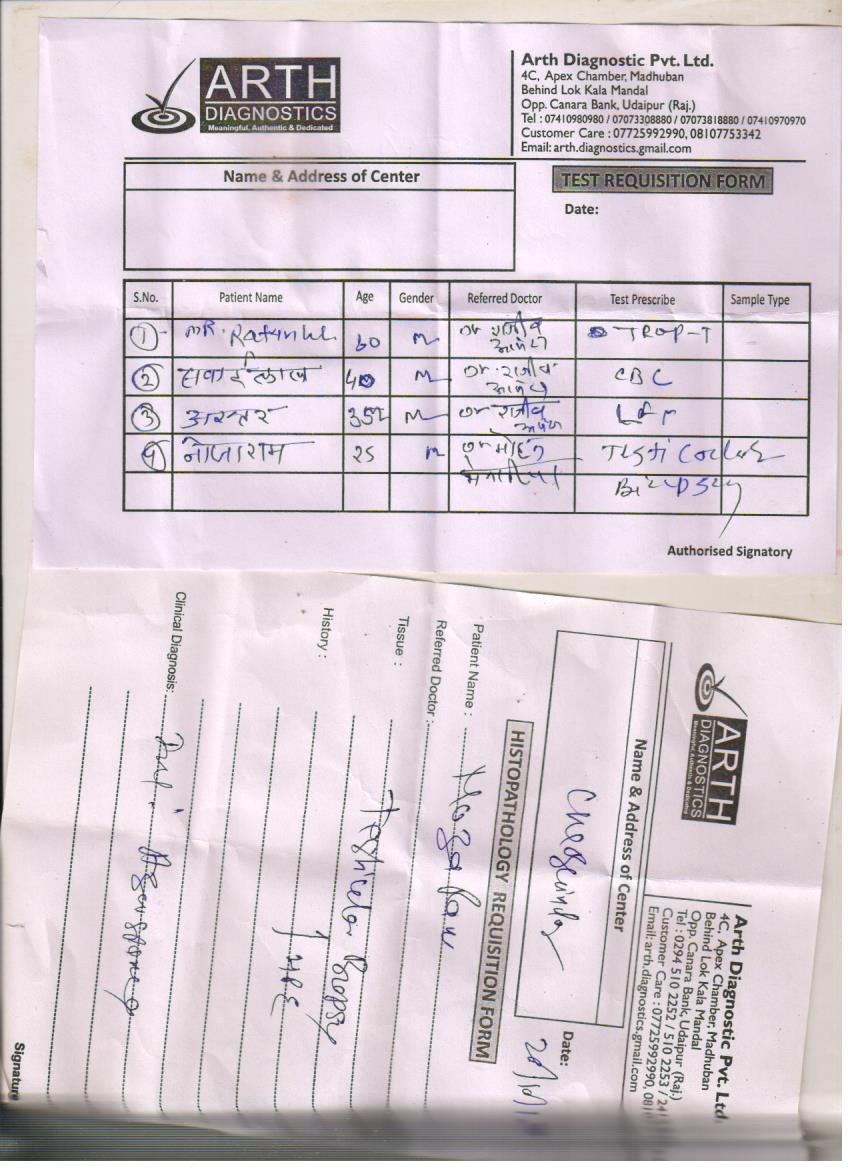 ARTH
DIAGNOSTICS
Meaningful, Authentic & Dedicated
Arth Diagnostic Pvt. Ltd.
4C, Apex Chamber, Madhuban
Behind Lok Kala Mandal
Opp. Canara Bank, Udaipur (Raj.)
Tel : 07410980980 / 07073308880 / 07073818880 / 07410970970
Customer Care : 07725992990, 08107753342
Email: arth.diagnostics.gmail.com
Name & Address of Center
TEST REQUISITION FORM
Date:
S.No. Patient Name Age Gender Referred Doctor Test Prescribe Sample Type
1 MR. 60 M Dr राजीव TROP-T
2 सवाईलाल 40 M Dr राजीव CBC
3 35 M Dr राजीव
4 नोजाराम 25 M Dr
Authorised Signatory
ARTH
DIAGNOSTICS
Meaningful, Authentic & Dedicated
Arth Diagnostic Pvt. Ltd
4C, Apex Chamber, Madhuban
Behind Lok Kala Mandal
Opp. Canara Bank, Udaipur (Raj.)
Tel : 0294 510 2252 / 510 2253 / 241
Customer Care : 07725992990, 081
Email: arth.diagnostics.gmail.com
Name & Address of Center
Date:
HISTOPATHOLOGY REQUISITION FORM
Patient Name :
Referred Doctor :
Tissue : Testicular Biopsy
History : HPE
Clinical Diagnosis:
Signature